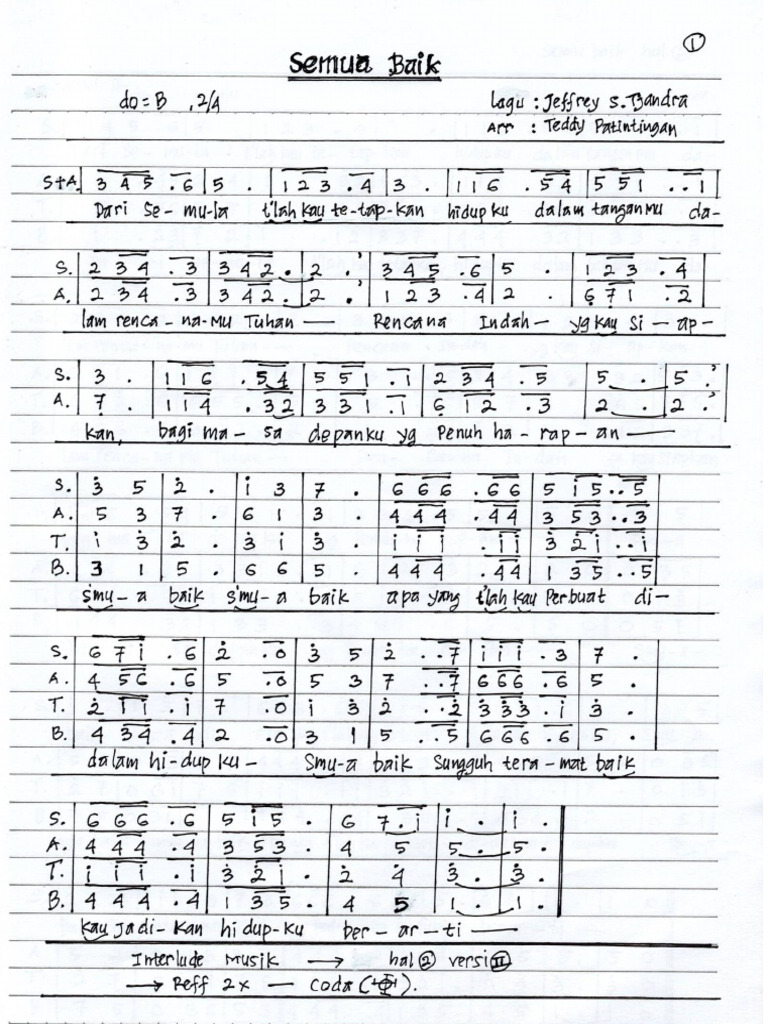 ①
Semua Baik
do = B , 2/4 Lagu : Jeffrey S. Tjandra
Arr : Teddy Patintingan
S+A. | 3 4 5 . 6 | 5 . | 1 2 3 . 4 | 3 . | 1 1 6 . 5 4 | 5 5 1 . . 1 |
Dari Se - mu-la t'lah kau te-tap-kan hidup ku dalam tanganmu da-
S. | 2 3 4 . 3 | 3 4 2 . | 2 . ' | 3 4 5 . 6 | 5 . | 1 2 3 . 4 |
A. | 2 3 4 . 3 | 3 4 2 . | 2 . ' | 1 2 3 . 4 | 2 . | 6̣ 7̣ 1 . 2 |
lam renca - na-Mu Tuhan — Rencana Indah - yg kau Si - ap -
S. | 3 . | 1 1 6 . 5 4 | 5 5 1 . 1 | 2 3 4 . 5 | 5 . | 5 . ' |
A. | 7̣ . | 1 1 4 . 3 2 | 3 3 1 . 1 | 6̣ 1 2 . 3 | 2 . | 2 . ' |
kan, bagi ma - sa depanku yg Penuh ha - rap - an —
S. | 3̇ 5 | 2̇ . | 1̇ 3 | 7 . | 6 6 6 . 6 6 | 5 1̇ 5 . . 5 |
A. | 5 3 | 7 . | 6 1 | 3 . | 4 4 4 . 4 4 | 3 5 3 . . 3 |
T. | 1̇ 3̇ | 2̇ . | 3̇ 1̇ | 3̇ . | 1̇ 1̇ 1̇ . 1̇ 1̇ | 3̇ 2̇ 1̇ . . 1̇ |
B. | 3 1 | 5 . | 6 6 | 5 . | 4 4 4 . 4 4 | 1 3 5 . . 5 |
smu - a baik s'mu - a baik apa yang t'lah kau Perbuat di-
S. | 6 7 1̇ . 6 | 2̇ . 0 | 3̇ 5 | 2̇ . . 7 | 1̇ 1̇ 1̇ . 3 | 7 . |
A. | 4 5 6 . 6 | 5 . 0 | 5 3 | 7 . . 7 | 6 6 6 . 6 | 5 . |
T. | 2̇ 1̇ 1̇ . 1̇ | 7 . 0 | 1̇ 3̇ | 2̇ . . 2̇ | 3̇ 3̇ 3̇ . 1̇ | 3̇ . |
B. | 4 3 4 . 4 | 2 . 0 | 3 1 | 5 . . 5 | 6 6 6 . 6 | 5 . |
dalam hi - dup ku - Smu-a baik Sungguh tera - mat baik
S. | 6 6 6 . 6 | 5 1̇ 5 . | 6 7 . 1̇ | 1̇ . | 1̇ . |
A. | 4 4 4 . 4 | 3 5 3 | 4 5 | 5 . | 5 . |
T. | 1̇ 1̇ 1̇ . 1̇ | 3̇ 2̇ 1̇ . | 2̇ 4̇ | 3̇ . | 3̇ . |
B. | 4 4 4 . 4 | 1 3 5 . | 4 5 | 1 . | 1 . |
kau Jadi - kan hi dup-ku ber - ar - ti —
Interlude Musik → hal ② versi Ⅱ
→ Reff 2x — Coda (𝄌).